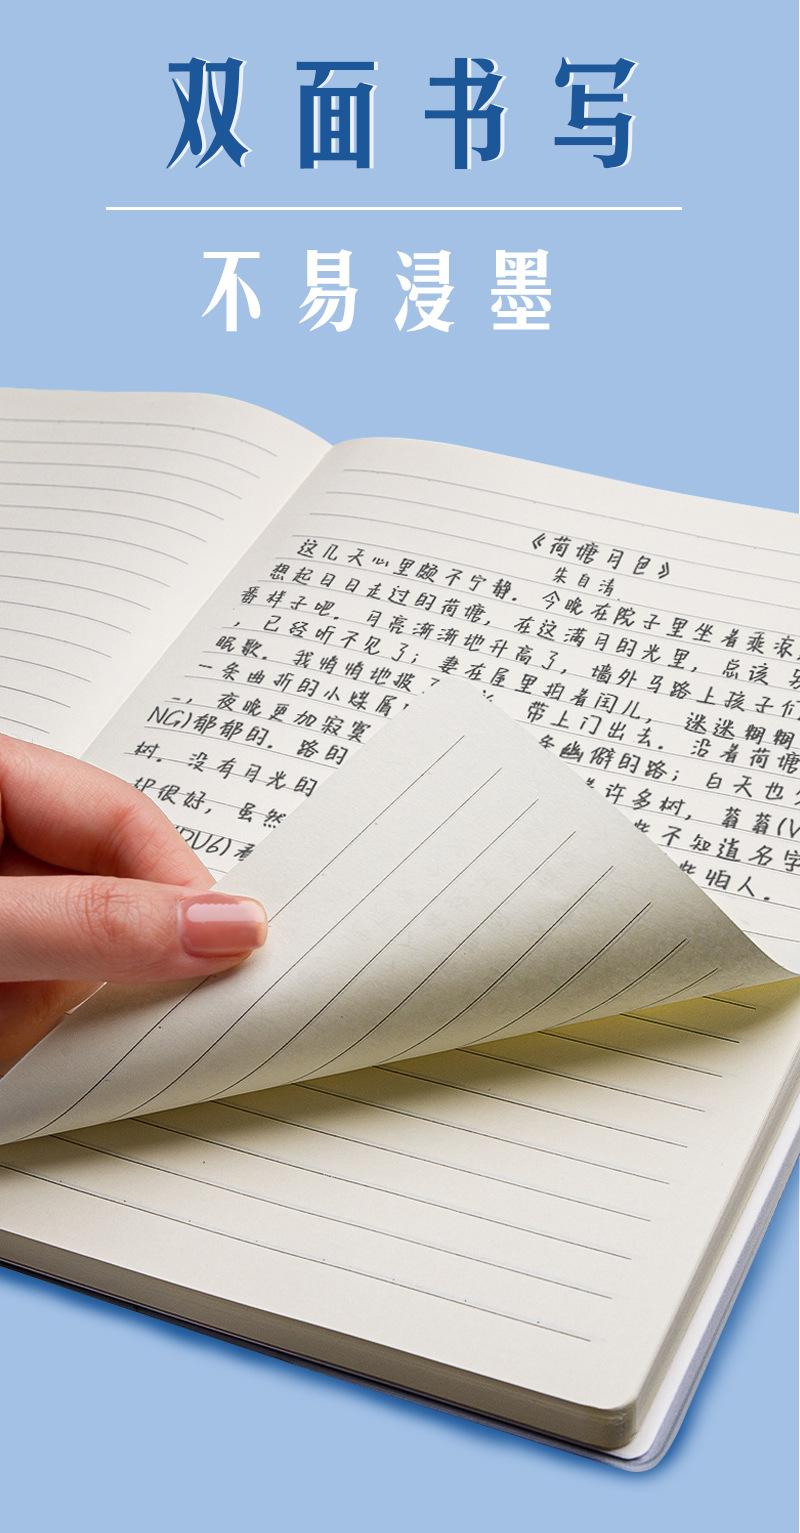 双面书写
不易浸墨
《荷塘月色》
朱自清
这几天心里颇不宁静。今晚在院子里坐着乘凉
想起日日走过的荷塘，在这满月的光里，总该
番样子吧。月亮渐渐地升高了，墙外马路上孩子们
，已经听不见了；妻在屋里拍着闰儿，迷迷糊糊
眠歌。我悄悄地披了 带上门出去。沿着荷塘
一条曲折的小煤屑 幽僻的路；白天也
，夜晚更加寂寞 许多树，蓊蓊(
NG)郁郁的。路的 不知道名字
树。没有月光的 些怕人。
却很好，虽然